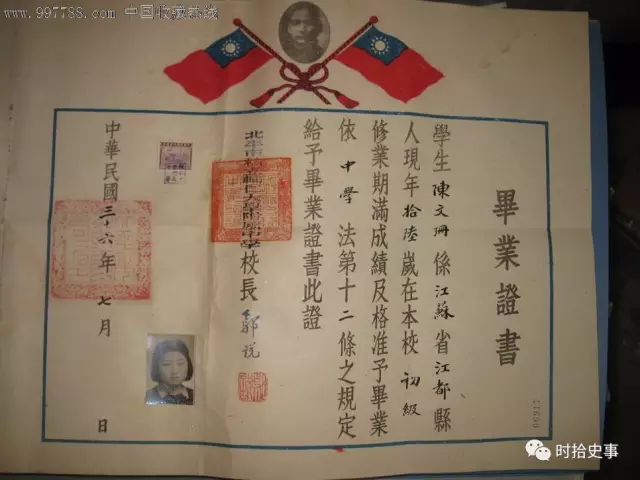 www.997788.com 中国收藏热线
畢業證書
學生陳文珊係江蘇省江都縣
人現年拾陸歲在本校初級
修業期滿成績及格准予畢業
依中學法第十二條之規定
給予畢業證書此證
校長
中華民國三十六年七月 日
时拾史事